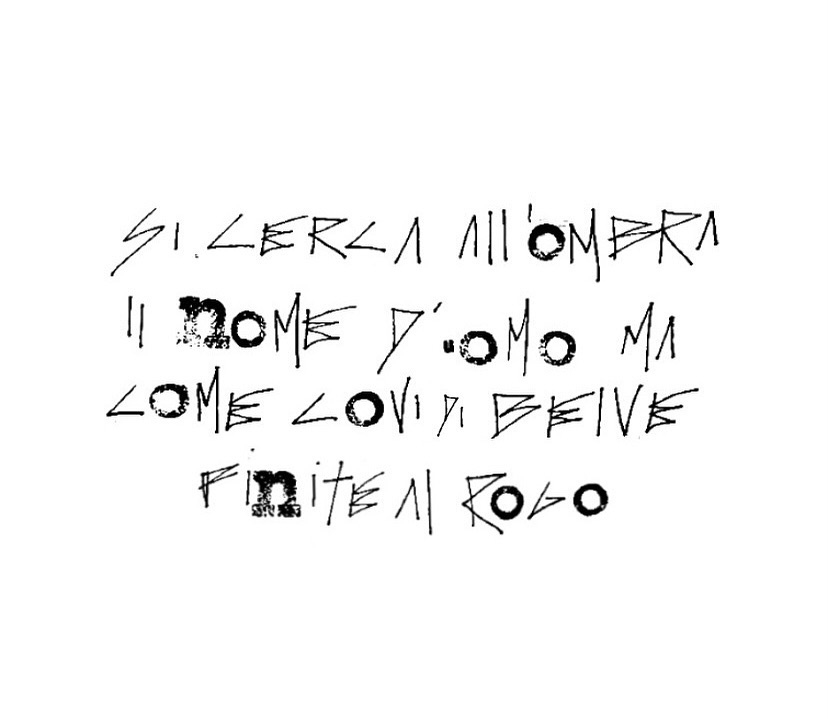 SI CERCA All'OMBRA
Il nOME D'uOMO MA
COME COVI DI BELVE
FinitE Al ROGO